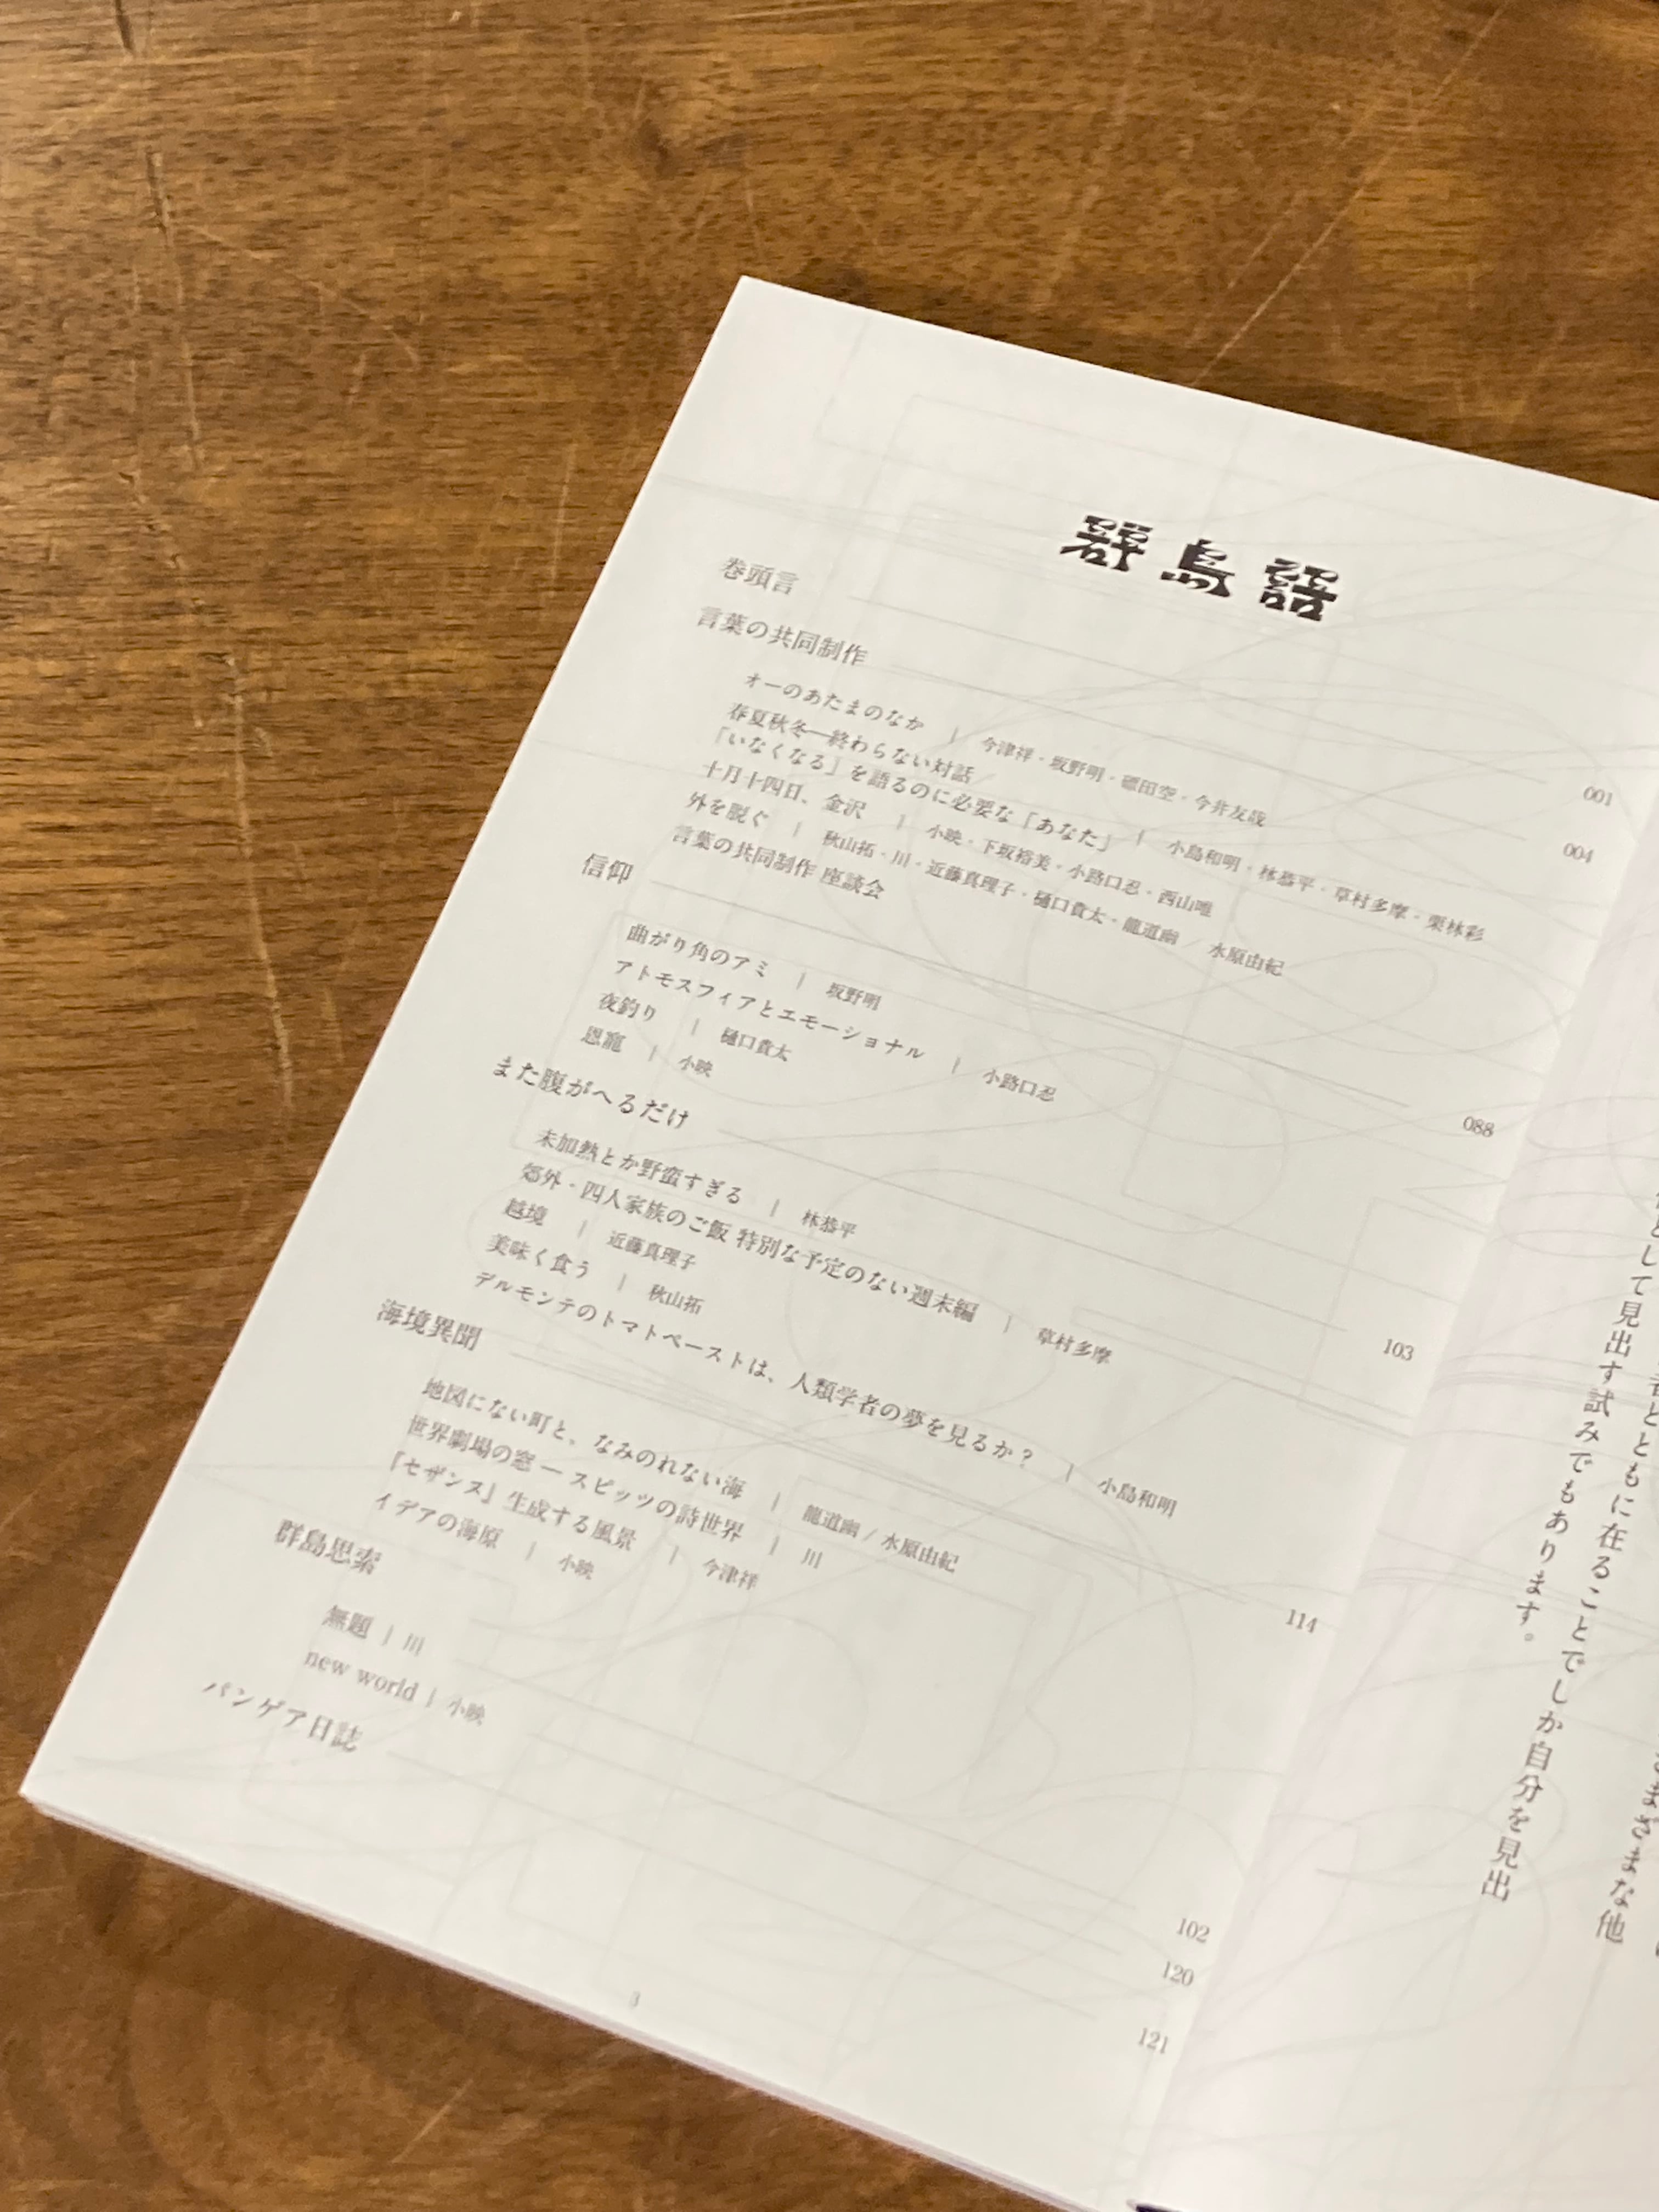 群島語
巻頭言 001
言葉の共同制作 004
オーのあたまのなか | 今津祥・坂野明・礒田空・今井友哉
春夏秋冬―終わらない対話
「いなくなる」を語るのに必要な「あなた」 | 小島和明・林恭平・草村多摩・栗林彩
十月十四日、金沢 | 小映・下坂裕美・小路口忍・西山唯
外を脱ぐ | 秋山拓・川・近藤真理子・樋口貴太・龍道幽 / 水原由紀
言葉の共同制作 座談会
信仰 088
曲がり角のアミ | 坂野明
アトモスフィアとエモーショナル | 小路口忍
夜釣り | 樋口貴太
恩寵 | 小映
また腹がへるだけ 103
未加熱とか野蛮すぎる | 林恭平
郊外・四人家族のご飯 特別な予定のない週末編 | 草村多摩
越境 | 近藤真理子
美味く食う | 秋山拓
デルモンテのトマトペーストは、人類学者の夢を見るか? | 小島和明
海境異聞 114
地図にない町と、なみのれない海 | 龍道幽 / 水原由紀
世界劇場の窓 ― スピッツの詩世界 | 川
『セザンヌ』生成する風景 | 今津祥
イデアの海原 | 小映
群島思索
無題 | 川 102
new world | 小映 120
パンゲア日誌 121
3
として見出す試みでもあります。
とともに在ることでしか自分を見出
まざまな他